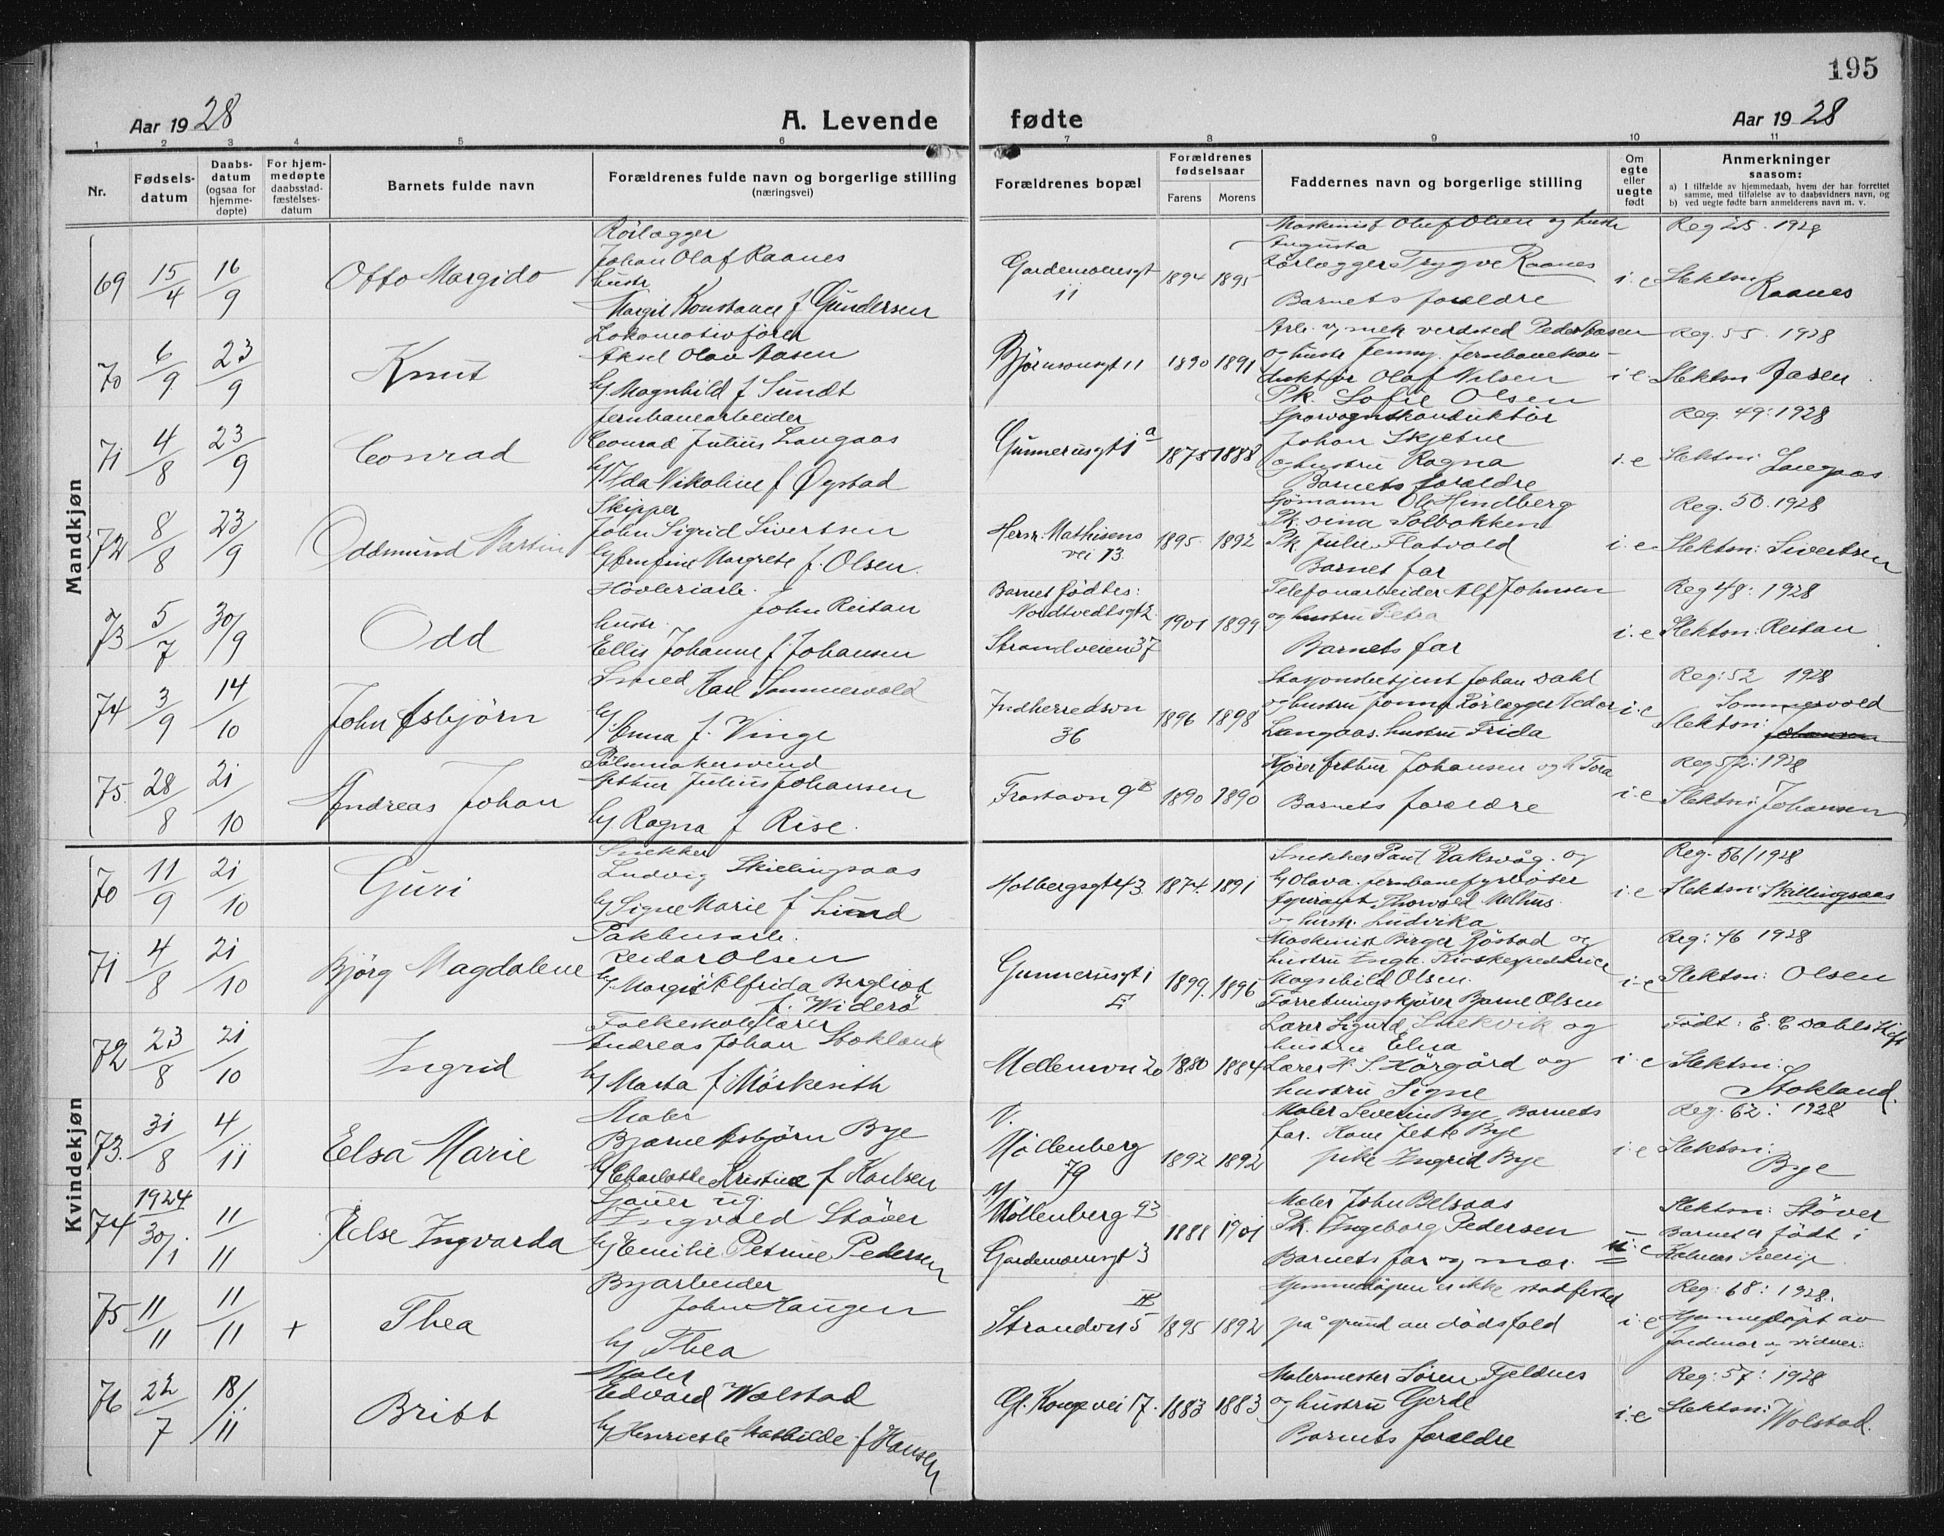 195
Aar 1928
A. Levende
fødte
Aar 1928
1 2 3 4 5 6 7 8 9 10 11
Nr.
Fødsels-
datum
Daabs-
datum
(ogsaa for
hjemme-
døpte)
For hjem-
medøpte
daabsstad-
fæstelses-
datum
Barnets fulde navn
Forældrenes fulde navn og borgerlige stilling
(næringsvei)
Forældrenes bopæl
Forældrenes
fødselsaar
Farens Morens
Faddernes navn og borgerlige stilling
Om
egte
eller
uegte
født
Anmerkninger
saasom:
a) I tilfælde av hjemmedaab, hvem der har forrettet
samme, med tilføielse av to daabsvidners navn, og
b) ved uegte fødte barn anmelderens navn m. v.
Mandkjøn
69 15/4 16/9 Otto Margido
Rørlægger
Johan Olaf Raanes
hustr.
Margit Konstanse f Gundersen
Gardemoensgt
11
1894 1895
Maskinist Oluf Olsen og hustr
Augusta
Rørlægger Trygve Raanes
Barnets forældre
i.e
Reg 25. 1928
Slektsn Raanes
70 6/9 23/9 Knut
Lokomotivfører
Aksel Olav Aasen
h/ Magnhild f Sundt
Bjørnsonsgt 11
1890 1891
Arb. v/ mek verdsted Peder Aasen
og hustr Jenny. Jernbanekon-
duktør Olaf Nilsen
Pk. Sofie Olsen
i.e.
Reg. 55. 1928
Slektsn Aasen
71 4/8 23/9 Conrad
Jernbanearbeider
Conrad Julius Langaas
h/ Ida Nikoline f Øystad
Gunnerusgt 1 a
1878 1888
Sporvognskonduktør
Johan Skjetne
og hustru Ragna
Barnets forældre
i.e
Reg. 49: 1928
Slektsn: Langaas
72 8/8 23/9 Oddmund Martin
Skipper
John Sigrid Sivertsen
h/ Jørnfine Margrete f. Olsen.
Herm. Mathisens
vei 13
1895. 1892
Sjømann Ole Hindberg
Pk. Dina Solbakken
Pk Julie Flatvold
Barnet far
i.e
Reg. 50. 1928
Slektsn: Sivertsen
73 5/7 30/9 Odd
Høvleriarb.
John Reitan
hustr.
Ellis Johanne f Johansen
Barnet fødtes:
Nordtvedtsgt 2
Strandveien 37
1901 1899
Telefonarbeider Alf Johnsen
og hustru Petra
Barnets far
i.e
Reg 48: 1928
Slektsn: Reitan
74 3/9 14/10 John Asbjørn
Smed Karl Sommervold
h/ Anna f. Vinge
Indherredsvn
36
1896 1898
Stasjonsbetjent Johan Dahl
og hustru Jonna Rørlægger Peder
Langaas. hustru Frida
i.e
Reg: 52 1928
Sommervold
Slektsn: Johansen
75. 28/8 21/10 Andreas Johan
Pølsemakersvend
Arthur Julius Johansen
h/ Ragna f Rise.
Frostavn 9 b
1890 1890
Kjører Arthur Johansen og h Tora
Barnets forældre
i.e
Reg 52: 1928
Slektsn: Johansen
Kvindekjøn
70 11/9 21/10 Guri
Snekker
Ludvig Skillingsaas
h/ Signe Marie f Lund
Holbergsgt 43
1874. 1891
Snekker Paul Raksvåg. og
h/ Olava. Jernbanefyrbøter
aspirant Thorvald Melhus.
og hustr. Ludvika
i.e
Reg. 56/1928
Slektsn: Skillingsaas
71 4/8 21/10 Bjørg Magdalene
Pakhusarb.
Reidar Olsen
h/ Margit Alfrida Bergliot
f. Widerø
Gunnerusgt 1
II
1899. 1896
Maskinist Birger Røstad og
hustru Inga. Kioskexpeditrice
Magnhild Olsen.
Forretningskjører Bjarne Olsen
i.e
Reg: 46 1928
Slektsn: Olsen
72 23/8 21/10 Ingrid
Folkeskolelærer
Andreas Johan Stokland
h/ Marta f Mørkeseth
Mellemvn 20
1880 1884
Lærer Sigurd Snekvik og
hustru Elna
Lærer H. S. Hørgård og
hustru Signe
i.e
Født: E. C Dahls Stift
Slektsn:
Stokland.
73. 31/8 4/11 Elsa Marie
Maler
Bjarne Asbjørn Bye
h/ Charlotte Kristine f Karlsen
V.
Møllenberg
79
1892 1892
Maler Severin Bye Barnets
far. Kone Jette Bye
pike Ingrid Bye
i.e
Reg. 62: 1928
Slektsn:
Bye
74 1924 30/1 11/11 Else Ingvarda
Sjauer ug.
Ingvald Støver
h/ Emilie Petrine Pedersen
V/ Møllenberg 93
Gardemoensgt 3
1888 1901
Maler John Belsaas
Pk. Ingeborg Pedersen
Barnets far og mor.
u.e
Slektsn: Støver
Barnet er født i
Kalmar Sverige
75 11/11 11/11 + Thea
Byarbeider
John Haugen
h/ Thea
IV
Strandvn 5
1895 1892
Hjemmedåpen er ikke stadfestet
på grund av dødsfald
i.e
Reg: 68: 1928.
Hjemmedøpt av
jordmor og vidner:
76 22/7 18/11 Britt
Maler
Edvard Wolstad
h/ Henriette Mathilde f Hansen
Gl. Kongevei 17.
1883 1883
Malermester Søren Fjeldnes
og hustru Gerda
Barnets forældre
i.e
Reg: 57: 1928
Slektsn: Wolstad.